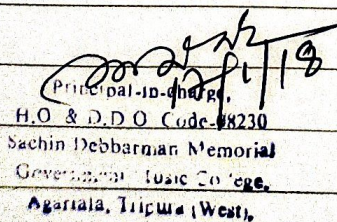 17/1/18
Principal-in-charge,
H.O & D.D.O Code-08230
Sachin Debbarman Memorial
Government Music College,
Agartala, Tripura (West),